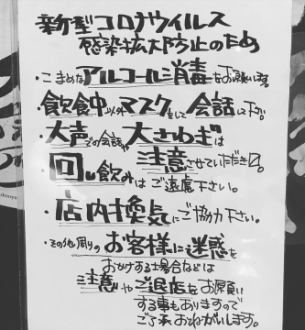 新型コロナウイルス
感染拡大防止のため
・こまめなアルコール消毒をお願います。
・飲食中以外マスクをして会話して下さい。
・大声での会話や大さわぎは
注意させていただきます。
・回し飲みはご遠慮下さい。
・店内換気にご協力下さい。
・その他周りのお客様に迷惑を
おかけする場合などは
注意やご退店をお願い
する事もありますので
ご了承おねがいします。